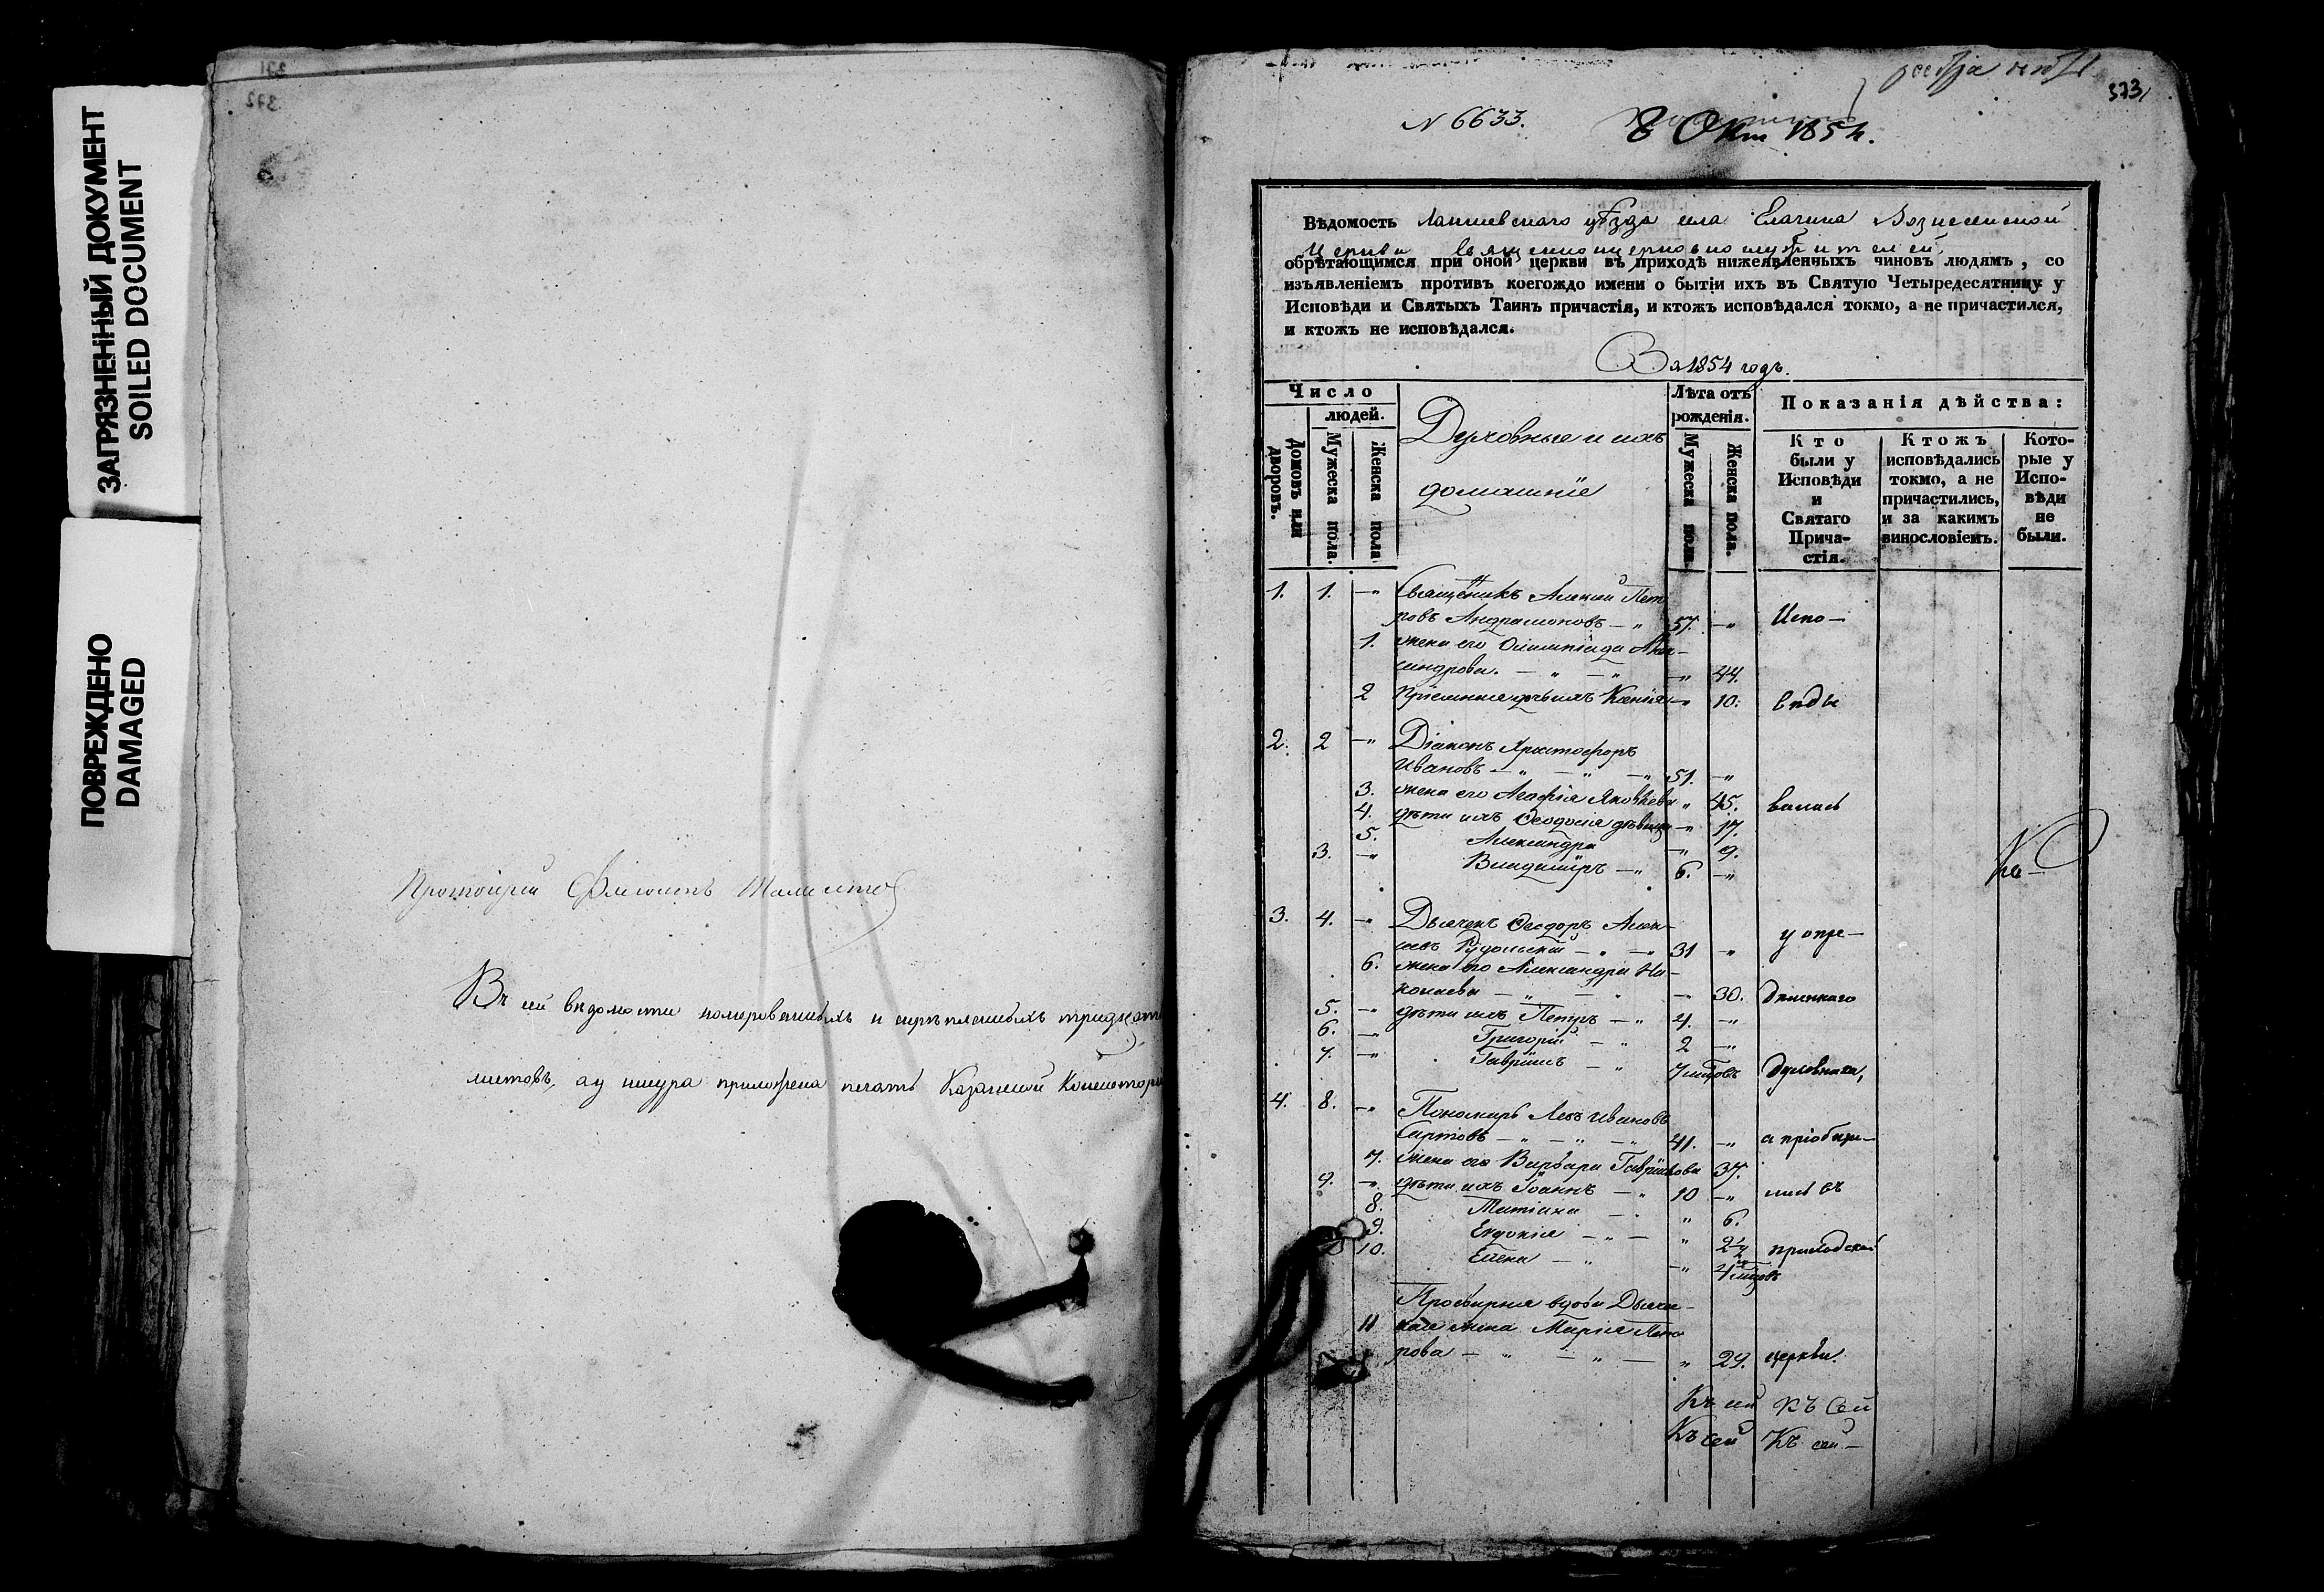 ЗАГРЯЗНЕННЫЙ ДОКУМЕНТ
SOILED DOCUMENT
ПОВРЕЖДЕНО
DAMAGED
371
372
Протоіерей
Въ сей ведомости номерованныхъ и скрѣпленныхъ тридцать
листовъ, а у шнура приложена печать Казанской Консисторіи
373
N 6633.
8 Окт 1854.
Вѣдомость Лаишевскаго уѣзда села Елагина Вознесенской
Церкви Священноцерковнослужителей
обрѣтающимся при оной церкви въ приходѣ нижеявленныхъ чиновъ людямъ, со
изъявленіемъ противъ коегождо имени о бытіи ихъ въ Святую Четыредесятницу у
Исповѣди и Святыхъ Таинъ причастія, и ктожъ исповѣдался токмо, а не причастился,
и ктожъ не исповѣдался.
За 1854 годъ.
Число
людей.
Домовъ или дворовъ.
Мужеска пола.
Женска пола
Духовные и ихъ
домашніе
Лѣта отъ
рожденія.
Мужеска пола.
Женска пола.
Показанія дѣйства:
Кто
были у
Исповѣди
и
Святаго
Прича-
стія.
Ктожъ
исповѣдались
токмо, а не
причастились,
и за какимъ
винословіемъ.
Кото-
рые у
Испо-
вѣди
не
были.
1. 1. —" Священникъ Алексій Пет
ровъ — " 57. —" Испо—
1. жена его Олимпіада Алек-
сандрова. — " — " —" 44.
2 Пріемная дочь ихъ Ксенія —" 10. вѣды
2. 2 —" Діаконъ Христофоръ
Ивановъ — " — " — " 51. —"
3. жена его Агафія Яковлева " 45. вались
4. дѣти ихъ Ѳеодосія дѣвица —" 17.
5. Александра —" 9.
3. —" Владиміръ — " 6. —"
Ка—
3. 4. —" Дьячекъ Ѳеодоръ Алек-
сѣевъ Рудольскій — " — " 31 " у опре—
6. жена его Александра Ни-
колаева — " — " —" 30. дѣленнаго
5. —" дѣти ихъ Петръ — " 4. —"
6. —" Григорій — " 2 —"
7. —" Гавріилъ — " 7 мѣсцовъ духовника,
4. 8. —" Пономарь Левъ Ивановъ
Сартовъ — " — " — " 41. —" а пріобща—
7. жена его Варвара Гаврилова 37.
9. —" дѣти ихъ Іоаннъ — " 10 —" лись въ
8. Татіана — " " 6.
9. Евдокія — " — " 2½ приходской
10. Елена — " —" 4 мѣсцовъ
Просвирня вдова Дьячи-
11 кая жена Марія Пет
рова — " — " — " 29. церкви.
Къ сей Къ Сей
Къ сей Къ сей—